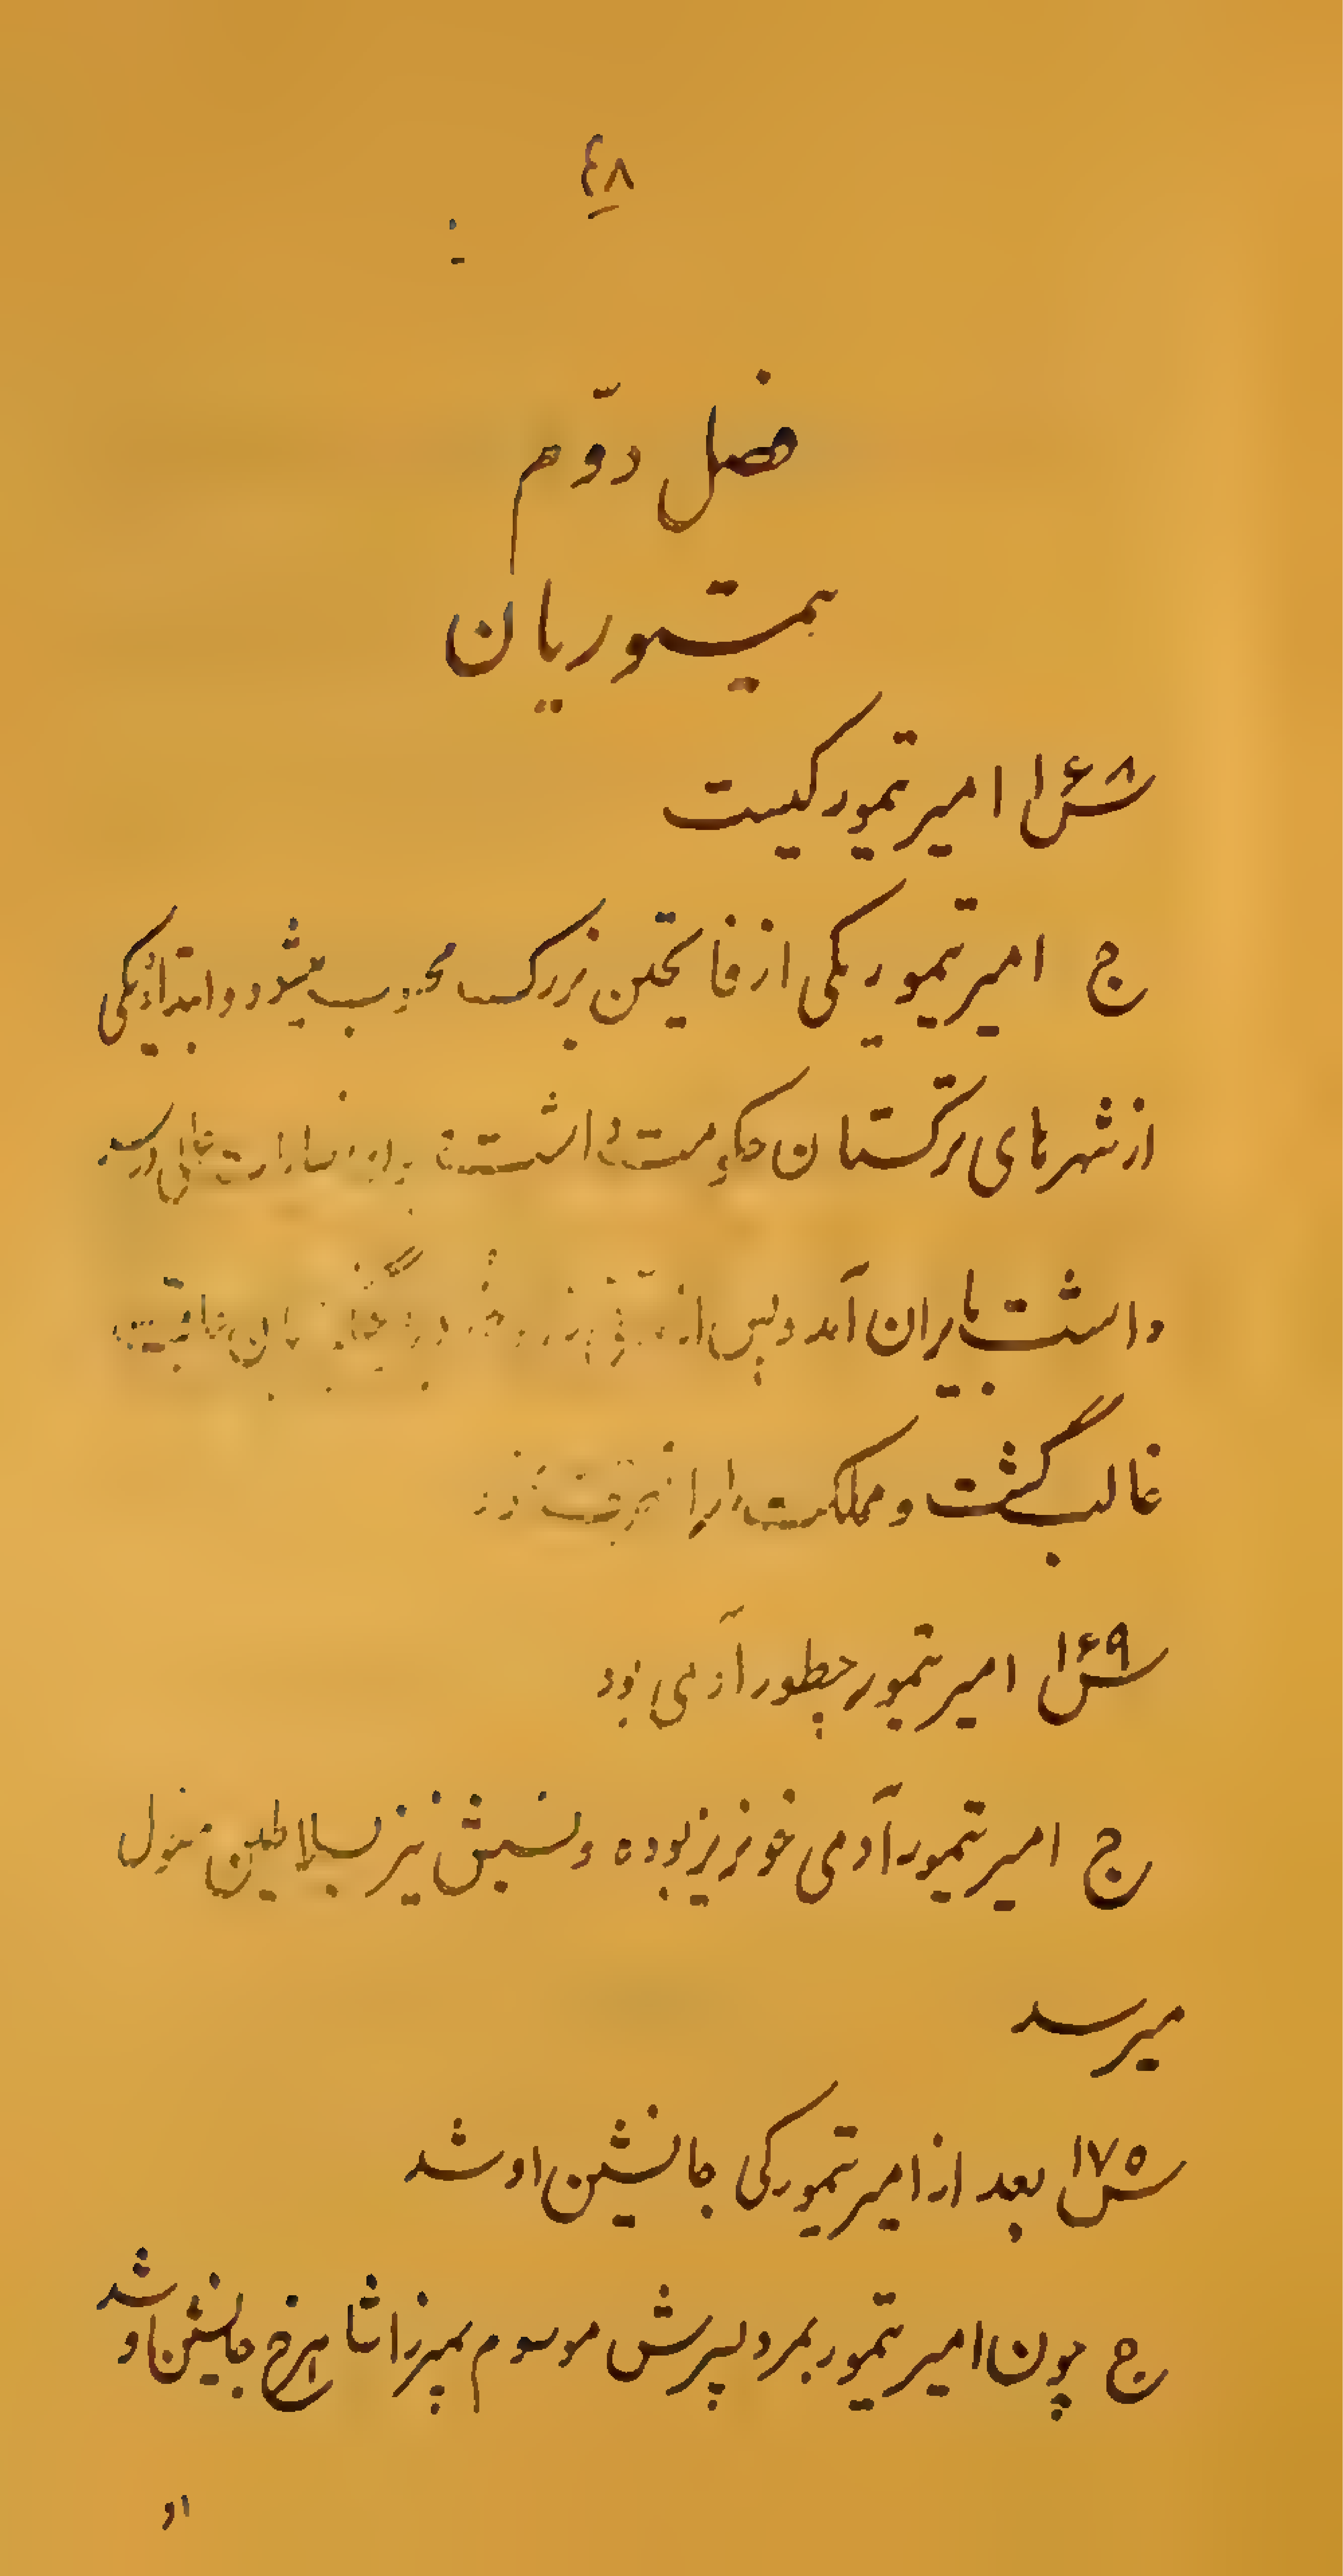 ۴۸
فصل دوّم
تیموریان
س۱۶۸ امیر تیمور کیست
ج امیر تیمور یکی از فاتحین بزرک محسوب میشود و ابتدا در یکی
از شهرهای ترکستان حکومت داشت
داشت بایران آمد و پس از
غالب گشت و مملکت را
س۱۶۹ امیر تیمور چطور آدمی بود
ج امیر تیمور آدمی خونریز بوده و نسبش نیز بسلاطین مغول
میرسد
س۱۷۵ بعد از امیر تیمور کی جانشین او شد
ج چون امیر تیمور بمرد پسرش موسوم بمیرزا شاهرخ جانشین او شد
او